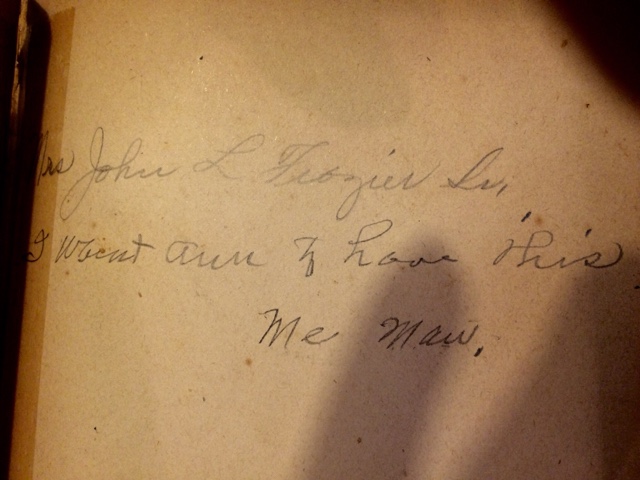 Mrs John L Frazier Sr,
I Want Ann to have this
Me Maw,